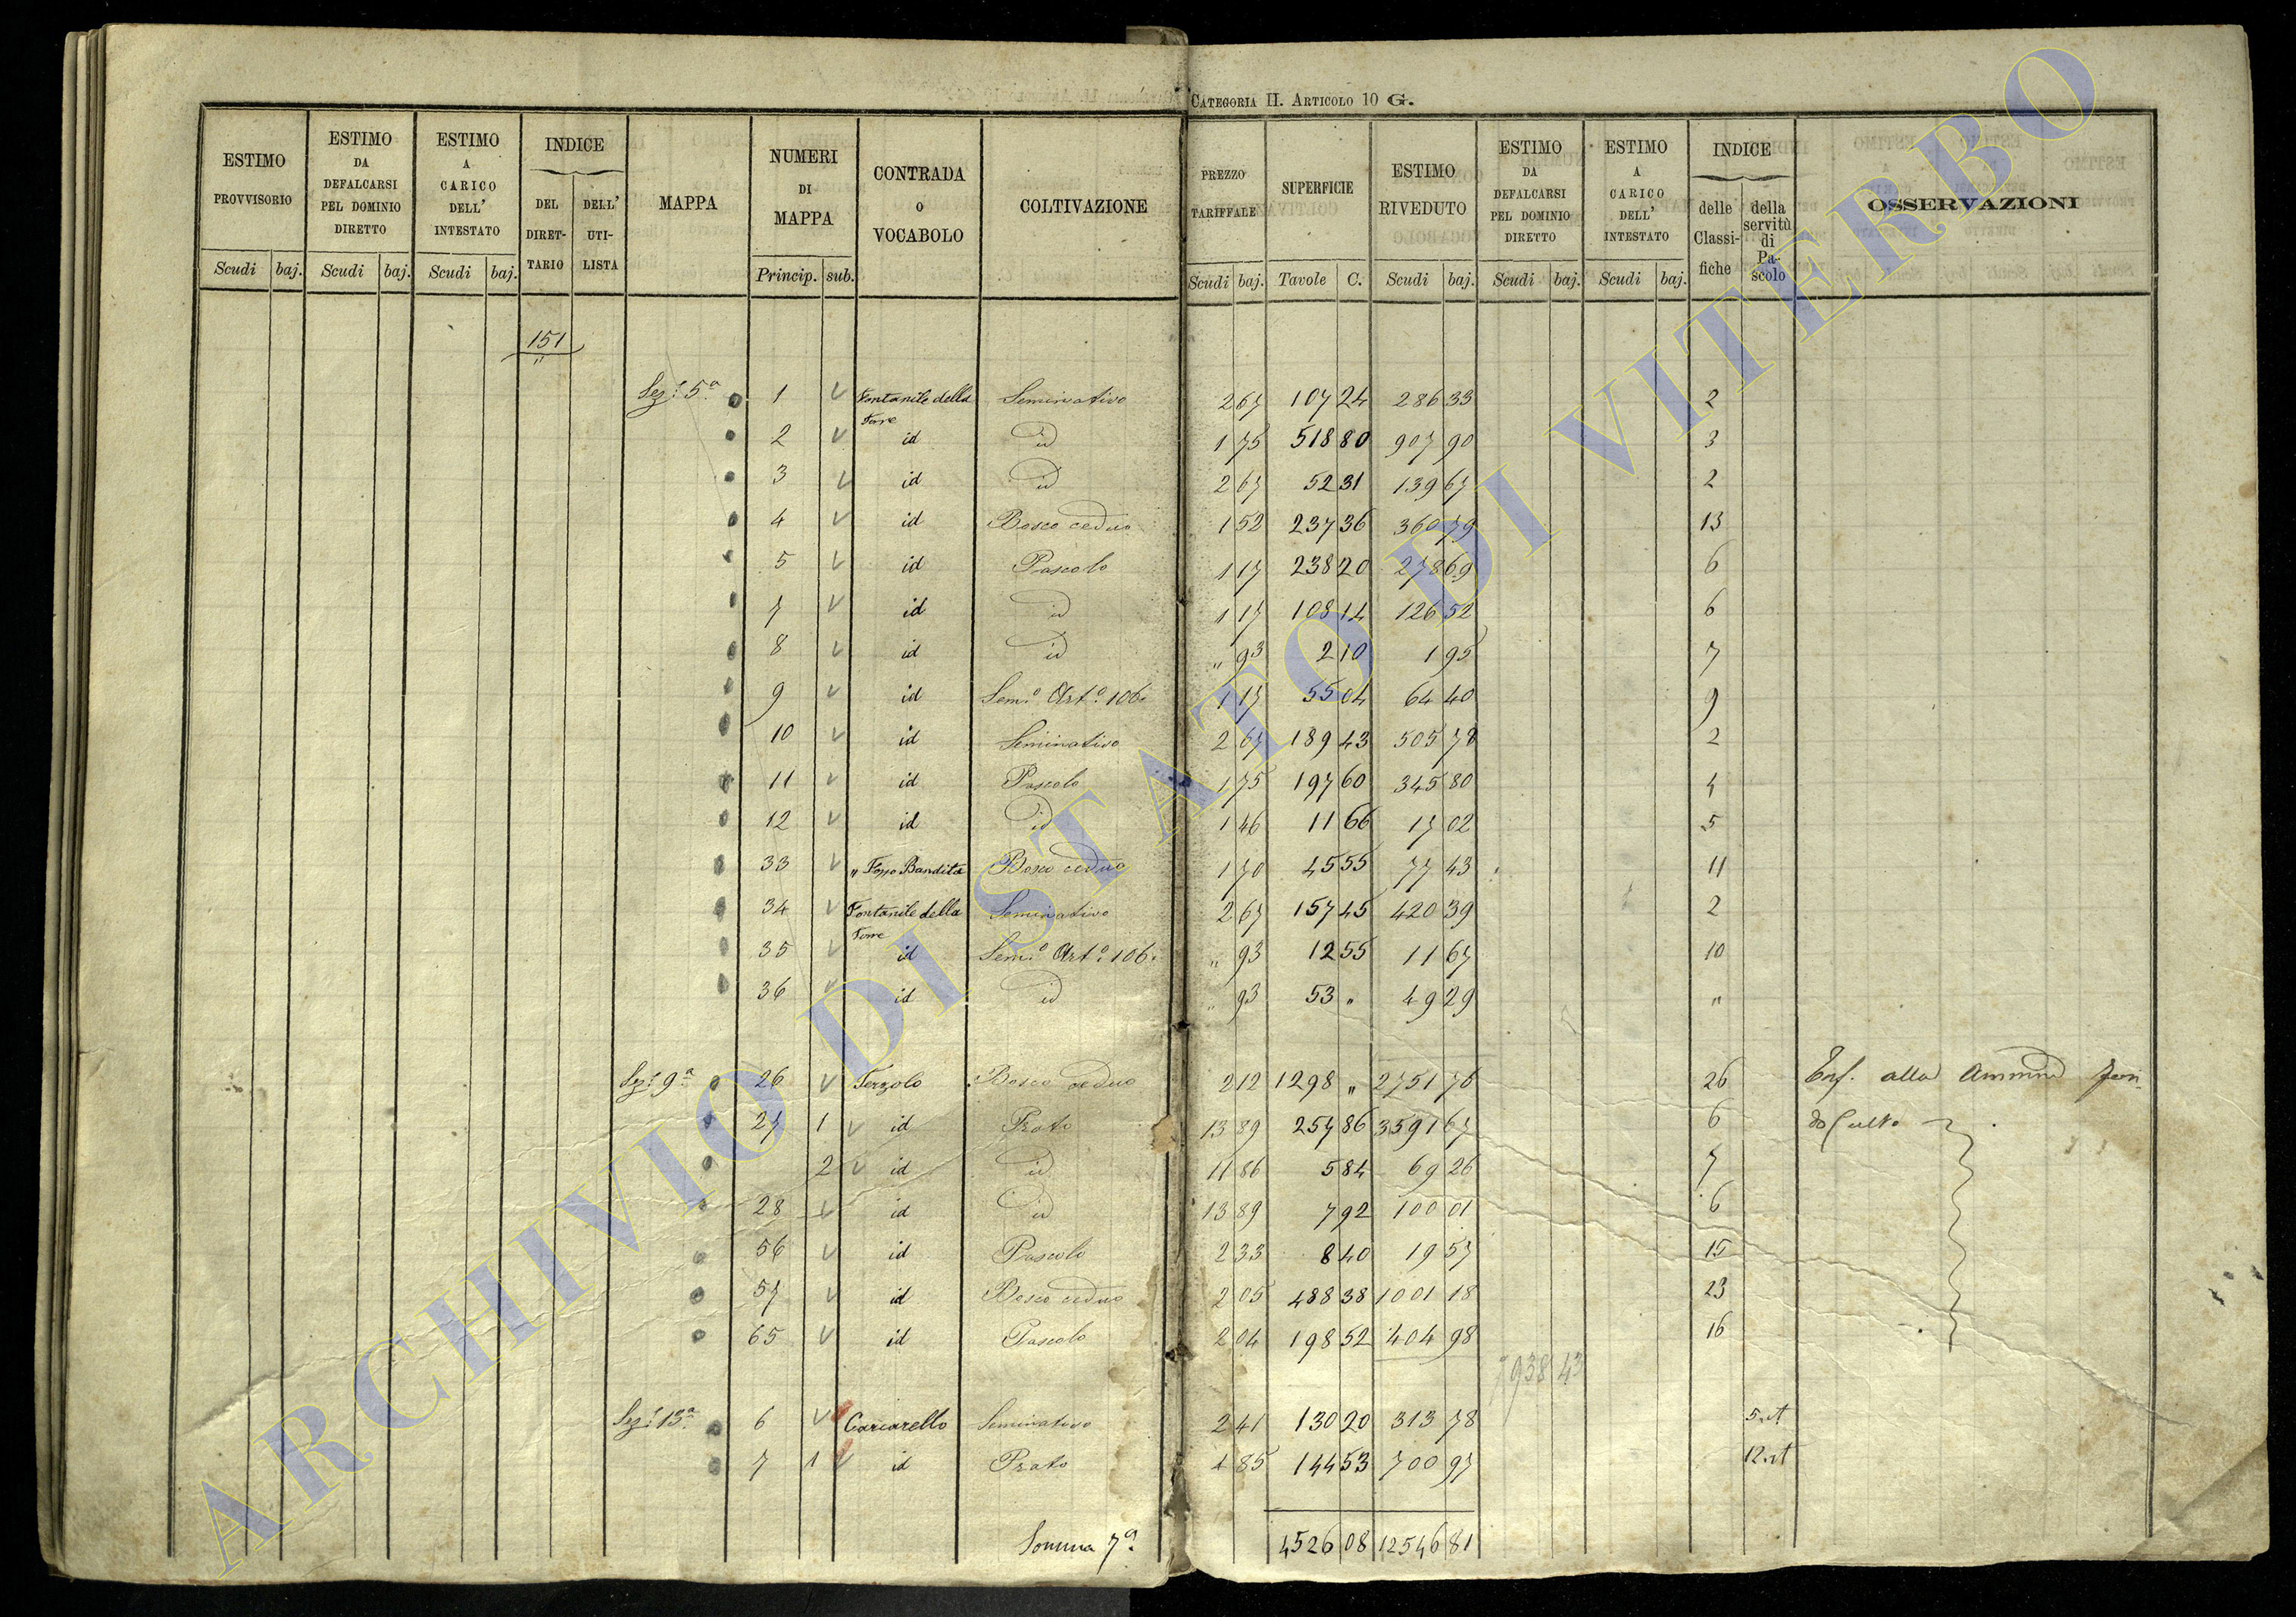 CATEGORIA II. ARTICOLO 10 G.
ESTIMO PROVVISORIO Scudi baj.
ESTIMO DA DEFALCARSI PEL DOMINIO DIRETTO Scudi baj.
ESTIMO A CARICO DELL' INTESTATO Scudi baj.
INDICE DEL DIRETTARIO DELL' UTILISTA
MAPPA
NUMERI DI MAPPA Princip. sub.
CONTRADA O VOCABOLO
COLTIVAZIONE
PREZZO TARIFFALE Scudi baj.
SUPERFICIE Tavole C.
ESTIMO RIVEDUTO Scudi baj.
ESTIMO DA DEFALCARSI PEL DOMINIO DIRETTO Scudi baj.
ESTIMO A CARICO DELL' INTESTATO Scudi baj.
INDICE delle Classifiche della servitù di Pascolo
OSSERVAZIONI
151 "
Sez.e 5a 1 Fontanile della Torre Seminativo 2 67 107 24 286 33 2
2 id id 1 75 518 80 907 90 3
3 id id 2 67 52 31 139 67 2
4 id Bosco ceduo 1 52 237 36 360 79 13
5 id Pascolo 1 17 238 20 278 69 6
7 id id 1 17 108 14 126 52 6
8 id id " 93 2 10 1 95 7
9 id Sem.o Art.o 106. 1 17 55 04 64 40 9
10 id Seminativo 2 67 189 43 505 78 2
11 id Pascolo 1 75 197 60 345 80 4
12 id id 1 46 11 66 17 02 5
33 " Fosso Bandita Bosco ceduo 1 70 45 55 77 43 11
34 Fontanile della Torre Seminativo 2 67 157 45 420 39 2
35 id Sem.o Art.o 106. " 93 12 55 11 67 10
36 id id " 93 53 " 49 29 "
Sez.e 9a 26 Terzolo Bosco ceduo 2 12 1298 " 2751 76 26 Enf. alla
27 1 id Prato 13 89 257 86 3591 67 6 Culto
2 id id 11 86 5 84 69 26 7
28 id id 13 89 7 92 100 01 6
56 id Pascolo 2 33 8 40 19 57 15
57 id Bosco ceduo 2 05 488 38 1001 18 23
65 id Pascolo 2 04 198 52 404 98 16
7938 43
Sez.e 13a 6 Carcarello Seminativo 2 41 130 20 313 78 5.
7 1 id Prato 4 85 144 53 700 97 12.
Somma 7a 4526 08 12546 81
ARCHIVIO DI STATO DI VITERBO